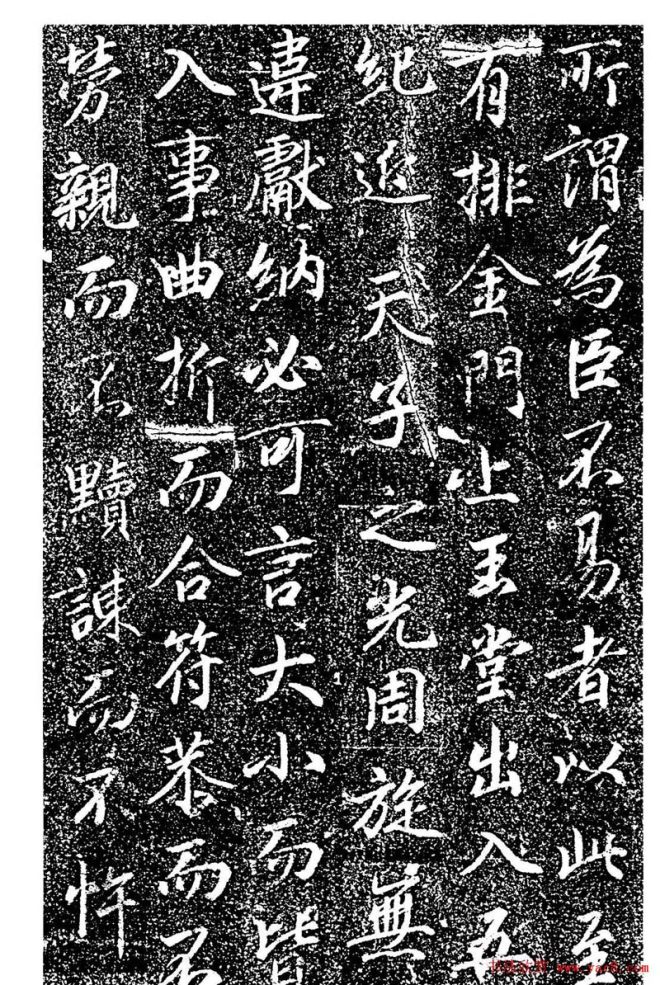 所謂為臣不易者以此至
有排金門上玉堂出入五
紀近天子之光周旋無
違獻納必可言大小而皆
入事曲折而合符恭而不
勞親而不黷諫而不忤
书法欣赏 www.yac8.com